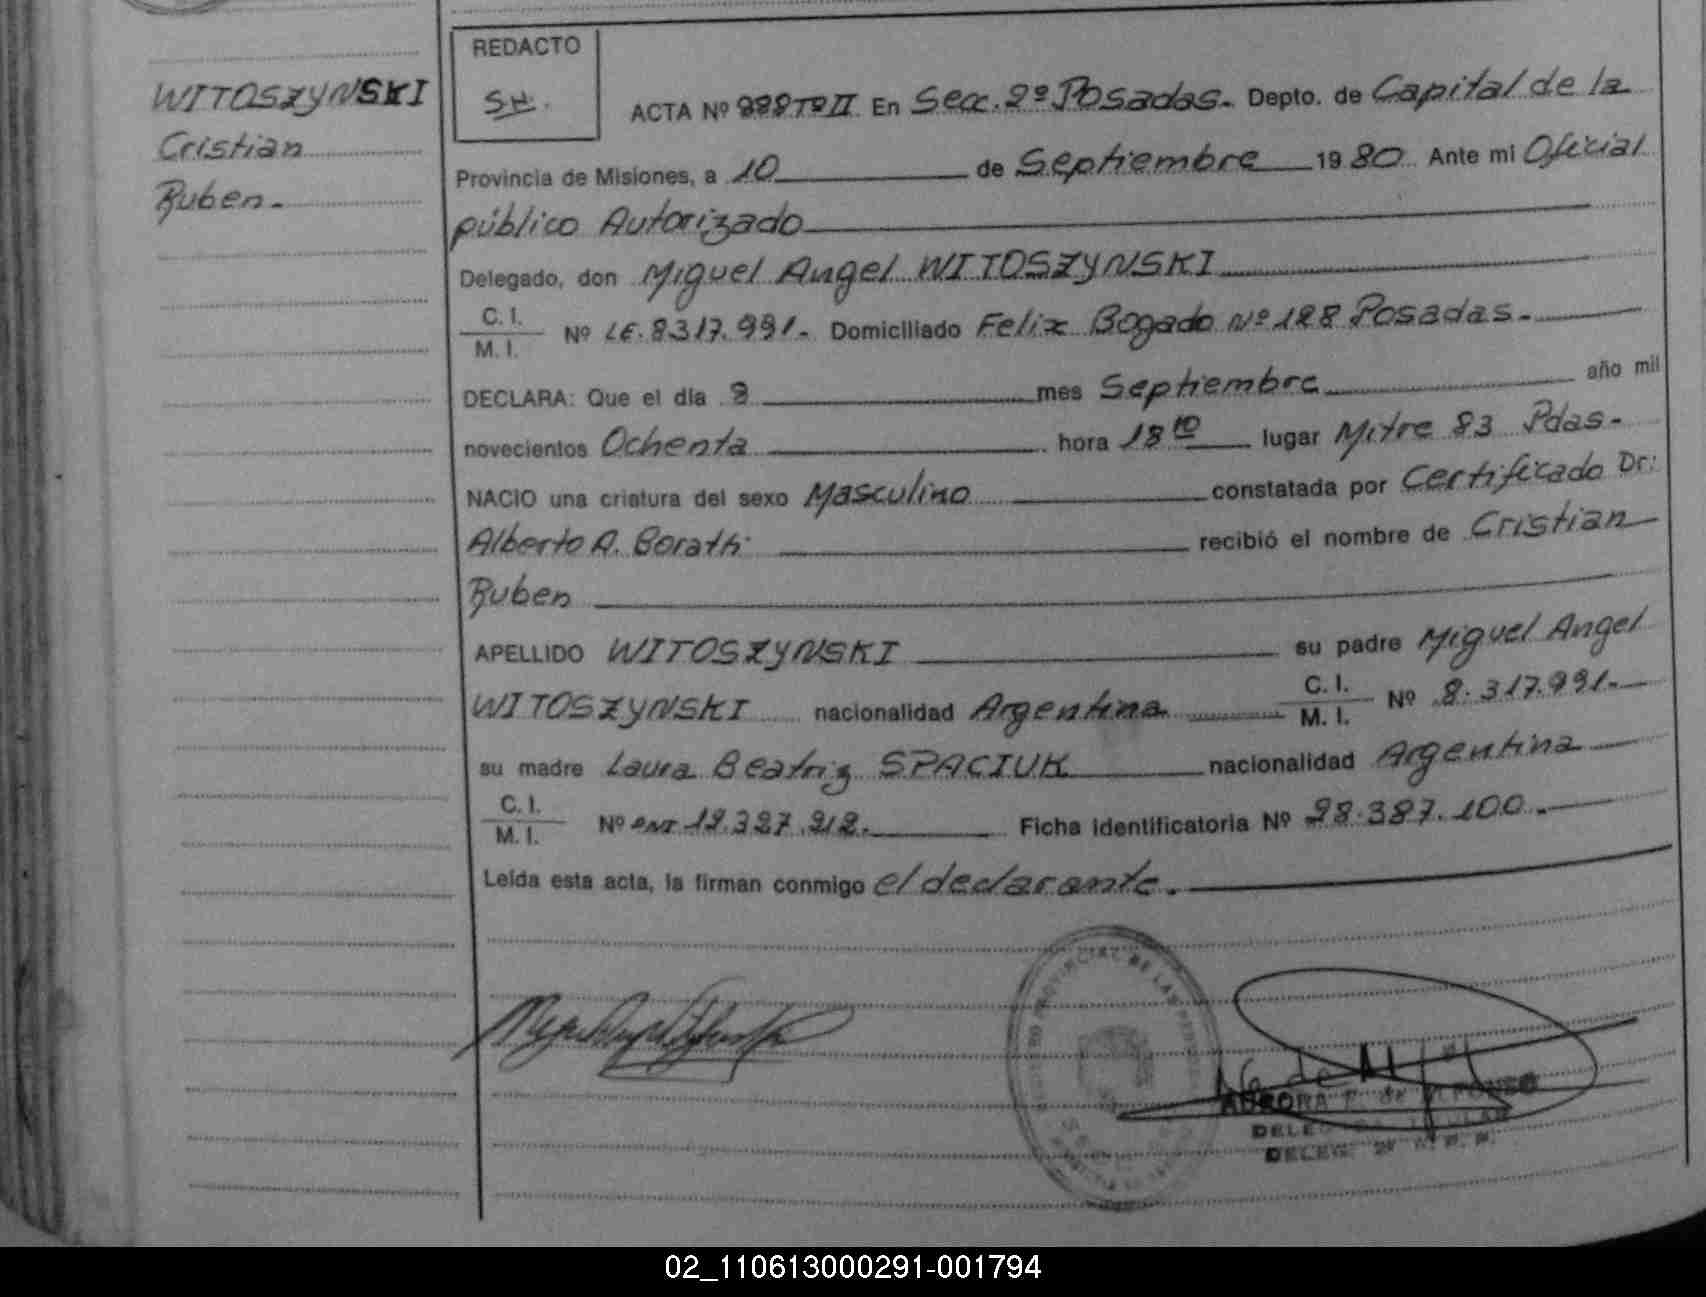 WITOSZYNSKI
Cristian
Ruben.-
REDACTO
SH.
ACTA Nº 999 Tº II En Secc. 2º Posadas.- Depto. de Capital de la
Provincia de Misiones, a 10 de Septiembre 1980 Ante mi Oficial
público Autorizado
Delegado, don Miguel Angel WITOSZYNSKI
C. I.
M. I. Nº LE. 8317.991.- Domiciliado Felix Bogado Nº 188 Posadas.-
DECLARA: Que el día mes Septiembre año mil
novecientos Ochenta hora 18 10 lugar Mitre 83 Pdas.-
NACIO una criatura del sexo Masculino constatada por Certificado Dr:
Alberto A. Borath: recibió el nombre de Cristian
Ruben
APELLIDO WITOSZYNSKI su padre Miguel Angel
WITOSZYNSKI nacionalidad Argentina C. I. M. I. Nº 8.317.991.-
su madre Laura Beatriz SPACIUK nacionalidad Argentina
C. I.
M. I. Nº DNI Ficha identificatoria Nº 28.387.100.-
Leída esta acta, la firman conmigo el declarante.-
AURORA F. DE
02_110613000291-001794